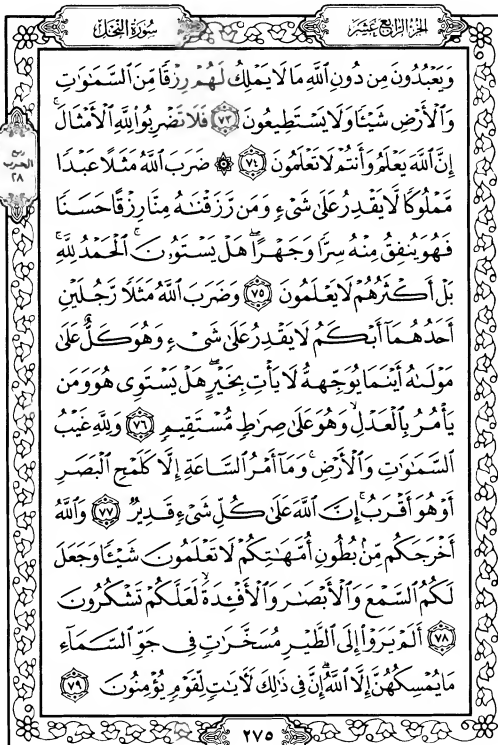 سُورَةُ النَّحْلِ
الجُزْءُ الرَّابِعَ عَشَرَ
وَيَعْبُدُونَ مِن دُونِ ٱللَّهِ مَا لَا يَمْلِكُ لَهُمْ رِزْقًا مِّنَ ٱلسَّمَـٰوَٰتِ
وَٱلْأَرْضِ شَيْـًٔا وَلَا يَسْتَطِيعُونَ ٧٣ فَلَا تَضْرِبُوا۟ لِلَّهِ ٱلْأَمْثَالَ ۚ
إِنَّ ٱللَّهَ يَعْلَمُ وَأَنتُمْ لَا تَعْلَمُونَ ٧٤ ۞ ضَرَبَ ٱللَّهُ مَثَلًا عَبْدًا
مَّمْلُوكًا لَّا يَقْدِرُ عَلَىٰ شَىْءٍ وَمَن رَّزَقْنَـٰهُ مِنَّا رِزْقًا حَسَنًا
فَهُوَ يُنفِقُ مِنْهُ سِرًّا وَجَهْرًا ۖ هَلْ يَسْتَوُۥنَ ۚ ٱلْحَمْدُ لِلَّهِ ۚ
بَلْ أَكْثَرُهُمْ لَا يَعْلَمُونَ ٧٥ وَضَرَبَ ٱللَّهُ مَثَلًا رَّجُلَيْنِ
أَحَدُهُمَآ أَبْكَمُ لَا يَقْدِرُ عَلَىٰ شَىْءٍ وَهُوَ كَلٌّ عَلَىٰ
مَوْلَىٰهُ أَيْنَمَا يُوَجِّههُّ لَا يَأْتِ بِخَيْرٍ ۖ هَلْ يَسْتَوِى هُوَ وَمَن
يَأْمُرُ بِٱلْعَدْلِ ۙ وَهُوَ عَلَىٰ صِرَٰطٍ مُّسْتَقِيمٍ ٧٦ وَلِلَّهِ غَيْبُ
ٱلسَّمَـٰوَٰتِ وَٱلْأَرْضِ ۚ وَمَآ أَمْرُ ٱلسَّاعَةِ إِلَّا كَلَمْحِ ٱلْبَصَرِ
أَوْ هُوَ أَقْرَبُ ۚ إِنَّ ٱللَّهَ عَلَىٰ كُلِّ شَىْءٍ قَدِيرٌ ٧٧ وَٱللَّهُ
أَخْرَجَكُم مِّنۢ بُطُونِ أُمَّهَـٰتِكُمْ لَا تَعْلَمُونَ شَيْـًٔا وَجَعَلَ
لَكُمُ ٱلسَّمْعَ وَٱلْأَبْصَـٰرَ وَٱلْأَفْـِٔدَةَ ۙ لَعَلَّكُمْ تَشْكُرُونَ
٧٨ أَلَمْ يَرَوْا۟ إِلَى ٱلطَّيْرِ مُسَخَّرَٰتٍ فِى جَوِّ ٱلسَّمَآءِ
مَا يُمْسِكُهُنَّ إِلَّا ٱللَّهُ ۗ إِنَّ فِى ذَٰلِكَ لَـَٔايَـٰتٍ لِّقَوْمٍ يُؤْمِنُونَ ٧٩
ربع
الحزب
٢٨
٢٧٥